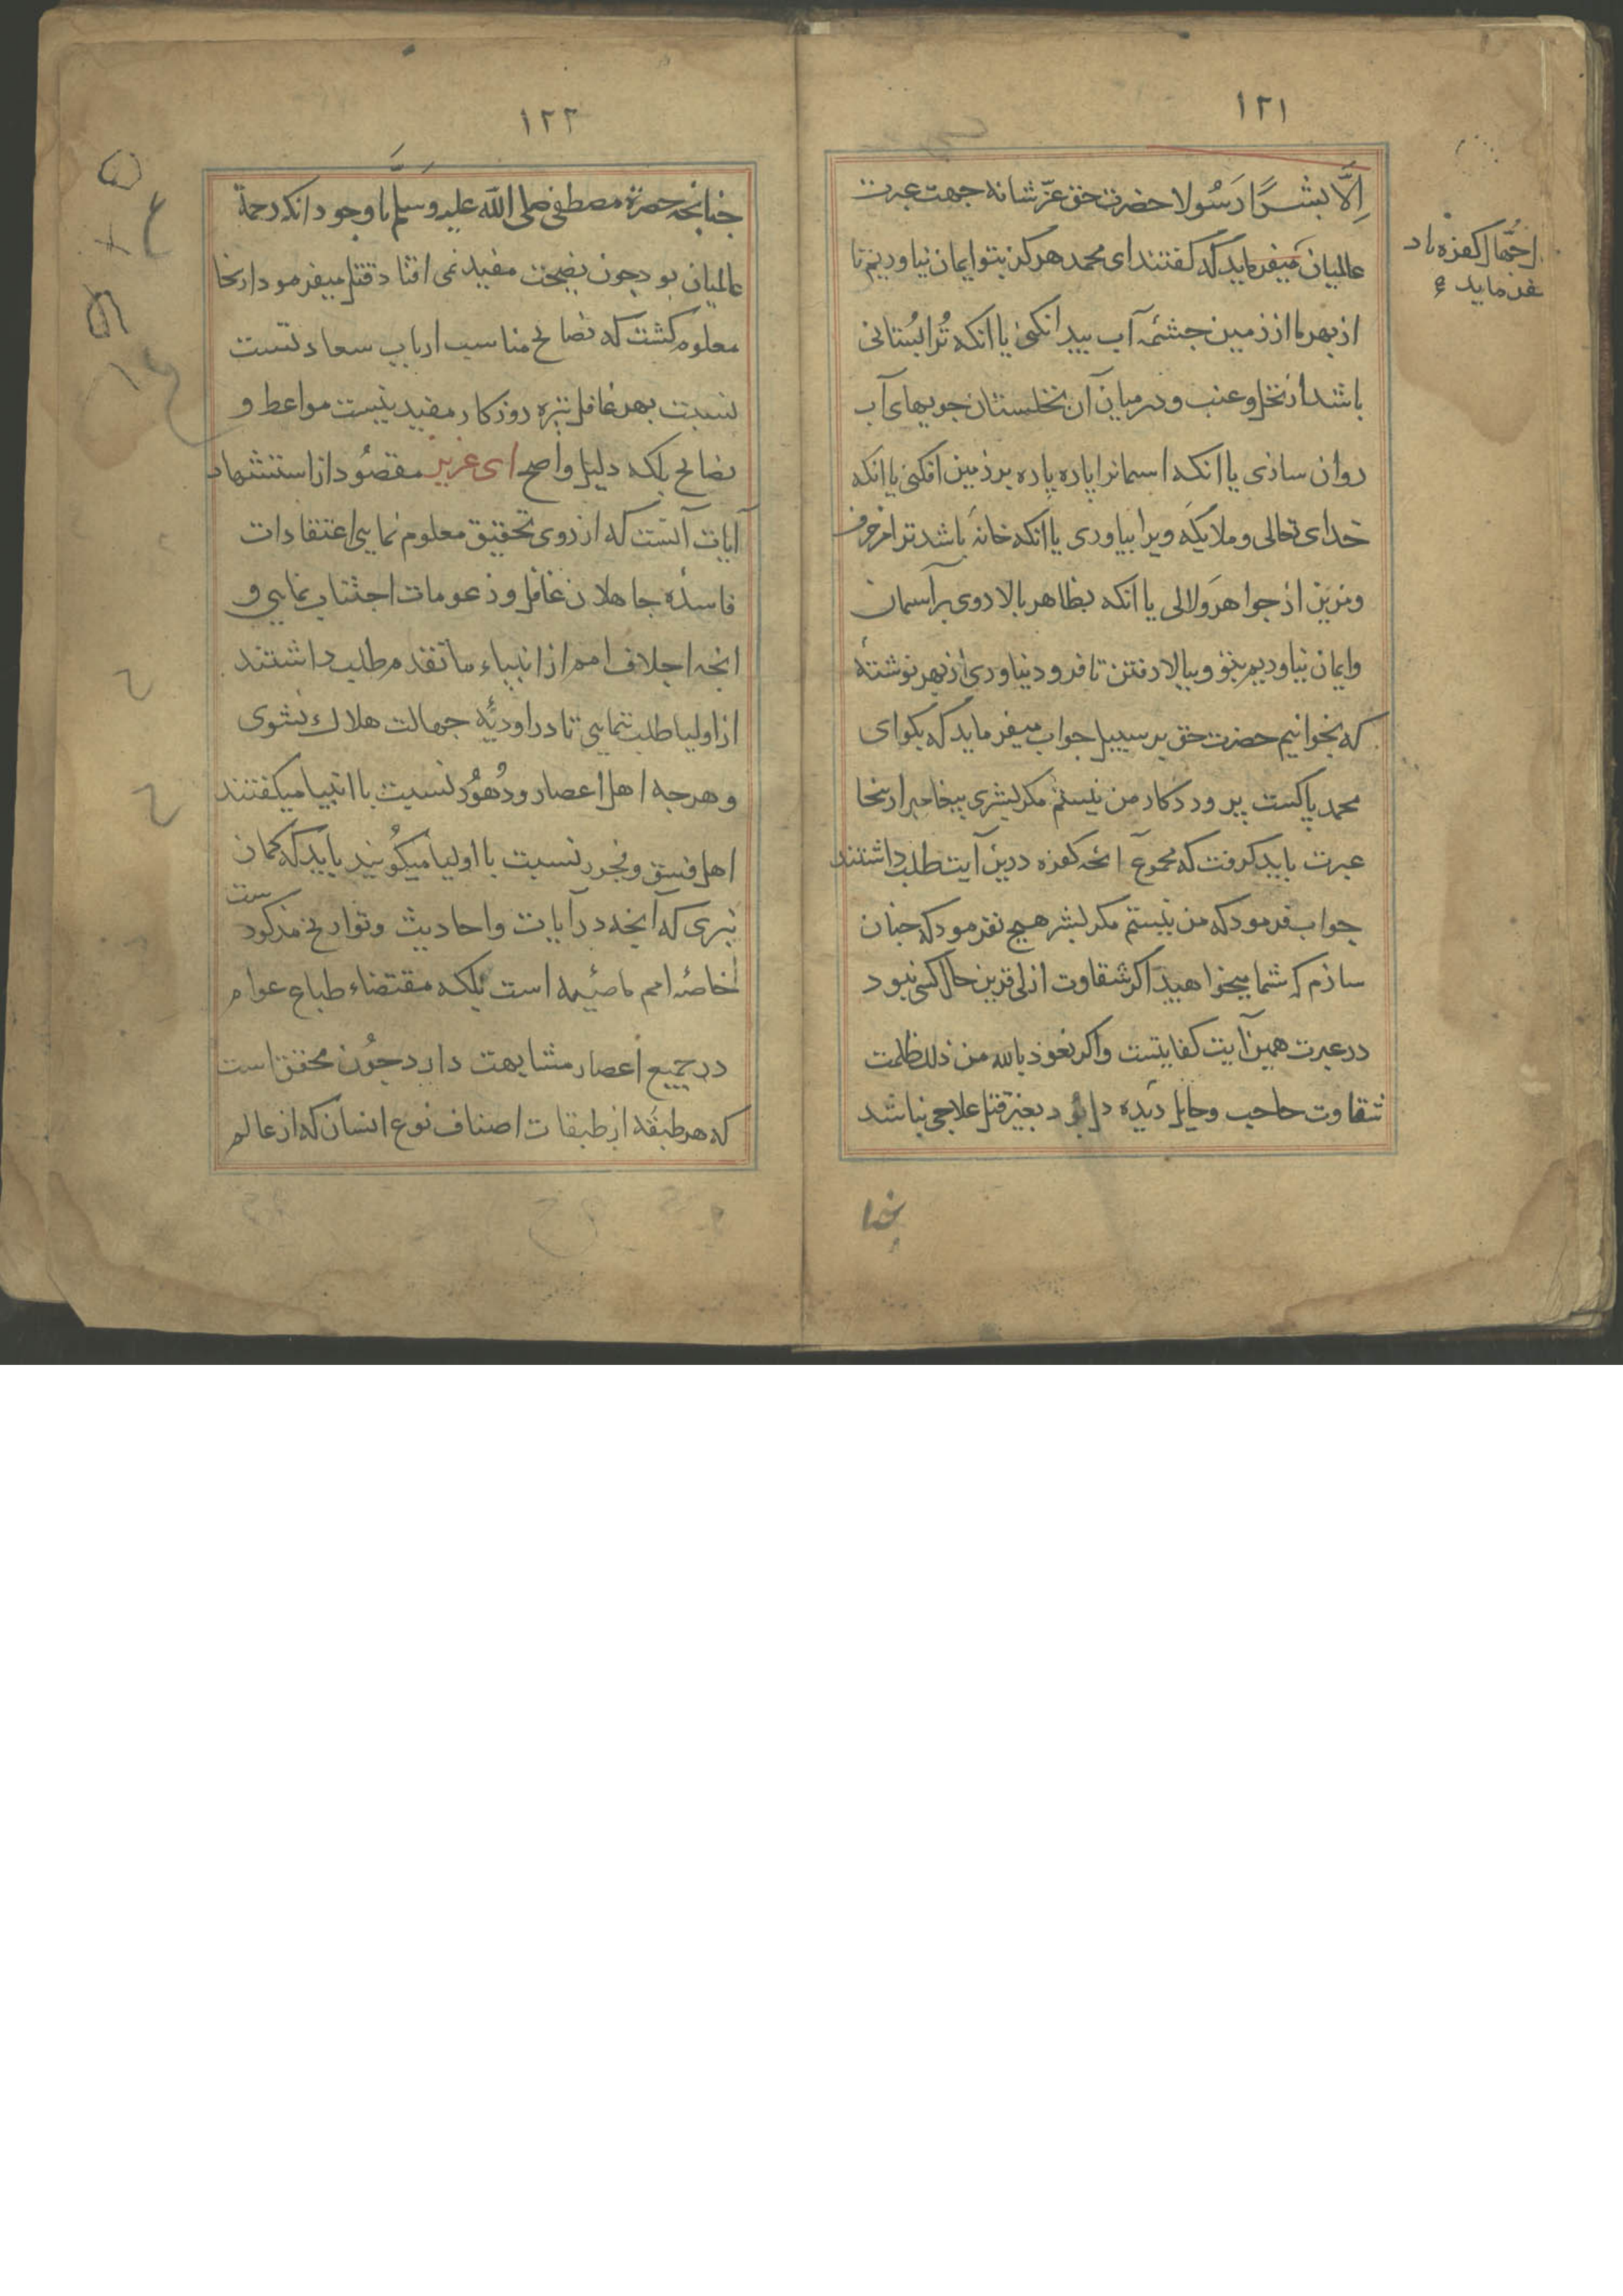 ١٢١
اِلَّا بشَرًا رَسُولا حضرت حق عزّ شانه جهت عبرت
عالمیان میفرماید که کفتند ای محمد هرکز بتو ایمان نیاوریم تا
از بهر ما از زمین جشئمه آب بیدا نکنی یا انکه تُرا بُستانی
باشد از نخل و عنب و در میان آن نخلستان جویهای آب
روان سازی یا انکه اسمانرا پاره پاره بر زمین افکنی یا انکه
خدای تعالی و ملایکه ویرا بیاوری یا انکه خانهٔ باشد ترا مزخرف
ومزین از جواهر و لالی یا انکه بظاهر بالا روی بر آسمان
وایمان نیاوریم بتو و ببالا رفتن تا فرود نیاوری از بهر نوشتهٔ
که بخوانیم حضرت حق بر سبیل جواب میفرماید که بکو ای
محمد پاکست پروردکار من نیستم مکر بشری بیغامبر ازینجا
عبرت باید کرفت که مجموع آنجه کفره درین آیت طلب داشتند
جواب فرمود که من نیستم مکر بشر هیج نفرمود که جنان
سازم که شما میخواهید اکر شقاوت ازلی قرین حال کسی نبود
در عبرت همین آیت کفایتست واکر نعوذ بالله من ذلک ظلمت
شقاوت حاجب وحایل دیده دل بود بغیر قتل علاجی نباشد
جنا
اجهال کفره باد
١٢٢
جنانجه حضرة مصطفی صلی الله علیه وسلم با وجود انکه رحمة
عالمیان بود جون نصیحت مفید نمی افتاد قتل میفرمود ازینجا
معلوم کشت که نصایح مناسب ارباب سعادتست
نسبت بهر غافل تیره روزکار مفید نیست مواعظ و
نصایح بلکه دلیل واضح ای عزیز مقصُود از استشهاد
آیات آنست که از روی تحقیق معلوم نمایی اعتقادات
فاسده جاهلان غافل و زعومات اجتناب نمایی و
انجه اجلاف امم از انبیاء ما تقدم طلب داشتند
از اولیا طلب ننمایی تا در اودیهٔ جهالت هلاک نشوی
وهرجه اهل اعصار ودُهُور نسبت با انبیا میکفتند
اهل فسق و فجور نسبت با اولیا میکویند باید که کمان
نبری که آنجه در آیات واحادیث وتواریخ مذکور ست
خاصهٔ امم ماضیه است بلکه مقتضاء طباع عوام
در جمیع اعصار مشابهت دارد جُون محقق است
که هر طبقه از طبقات اصناف نوع انسان که از عالم